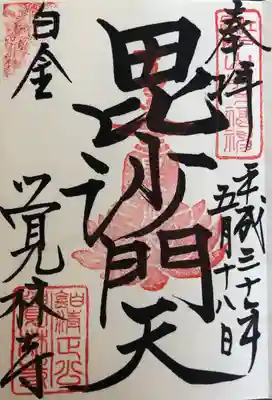 奉拝
平成二十七年
五月十八日
毘沙門天
白金
覚林寺
清正公